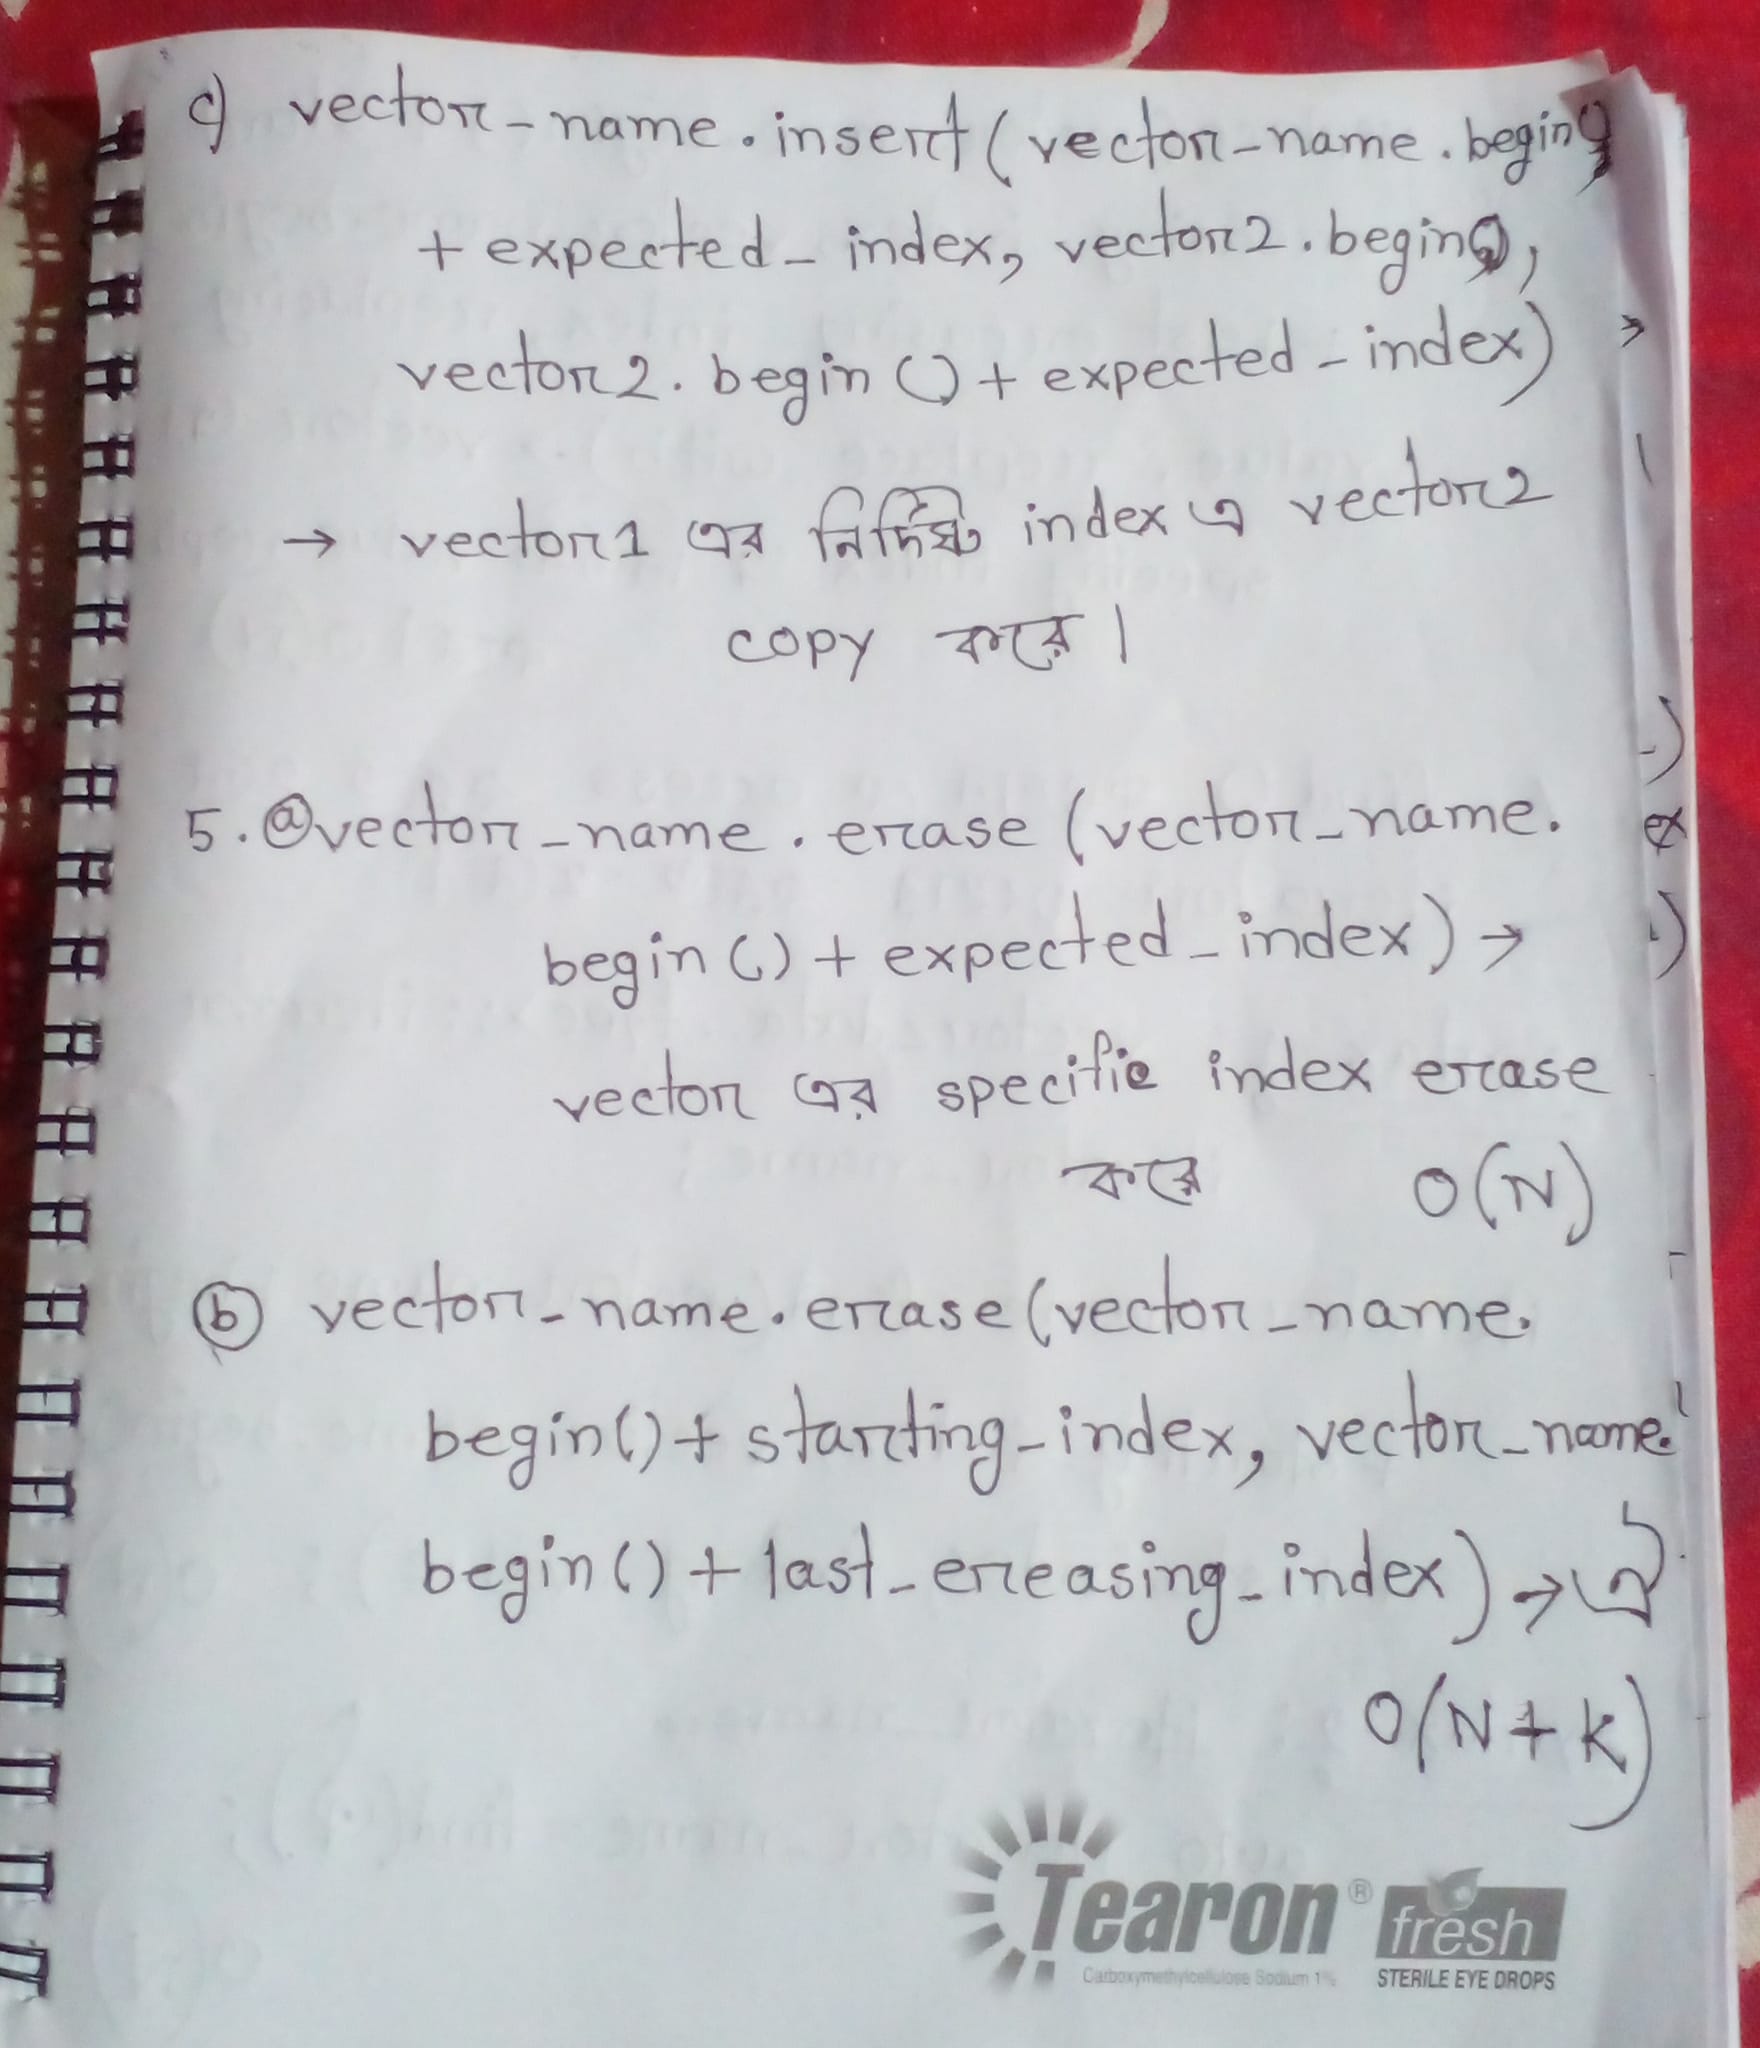 c) vector-name.insert(vector-name.begin()
+ expected_index, vector2.begin(),
vector2.begin()+expected-index)
→ vector1 এর নির্দিষ্ট index এ vector2
copy করে।
5. ⓐ vector_name.erase(vector_name.
begin()+expected_index) →
vector এর specific index erase
করে O(N)
ⓑ vector_name.erase(vector_name.
begin()+starting_index, vector_name.
begin()+last_ereasing_index) → ঐ
O(N+K)
Tearon® fresh
Carboxymethylcellulose Sodium 1% STERILE EYE DROPS